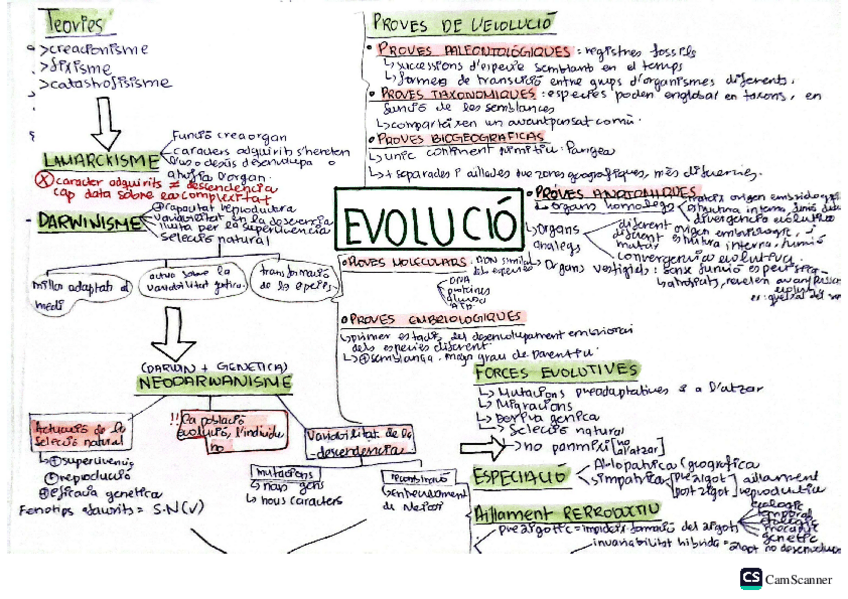 Teories
>creacionisme
>fixisme
>catastrofisme
LAMARCKISME
Funció crea organ
caracters adquirits s'hereten
us o desús desenvolupa o
atrofia l'organ.
caracter adquirits ≠ descendencia
cap data sobre la complexitat
DARWINISME
capacitat reproductora
variabilitat en la descendencia
lluita per la supervivencia
selecció natural
millor adaptats al
medi
actua sobre la
variabilitat
transformació
de les especies
(DARWIN + GENETICA)
NEODARWANISME
Actuació de la
selecció natural
supervivencia
reproducció
eficacia genetica
Fenotips = S.N(V)
!! La població
evolució, l'individu
no
Variabilitat de la
descendencia
mutacions
nap gens
nous caracters
de
EVOLUCIÓ
PROVES DE L'EVOLUCIÓ
PROVES PALEONTOLÓGIQUES : registres fossils
successions d'especie semblant en el temps
formes de transició entre grups d'organismes diferents.
PROVES TAXONOMIQUES : especies poden englobar en taxons, en
funció de les semblances
comparteixen un avantpassat comú.
PROVES BIOGEOGRAFICAS
unic continent primitiu: Pangea
+ separades i aillades zones geografiques més diferencies.
PROVES ANATOMIQUES
organs homolegs
mateix origen embriologic
estructura interna
divergencia evolutiva
Organs
analegs
diferent origen embriologic
diferent estructura interna,
convergencia evolutiva.
Organs vestigials: sense funció especifica
PROVES MOLECULARS:
DNA
proteines
ATP
PROVES EMBRIOLOGIQUES
primer estadis del desenvolupament embrionari
dels especies diferent
semblança. major grau de parentiu.
FORCES EVOLUTIVES
Mutacions preadaptatives a l'atzar
Migracions
Deriva genica
Selecció natural
no panmixi [no l'atzar]
ESPECIACIÓ
Al·lopatrica (geografica
simpatrica
prezigot
postzigot
aillament
reproductiu
Aillament REPRODUCTIU
prezigotic = impideix formació del zigot
ecologic
temporal
etologic
mecanic
genetic
inviabilitat hibrida = zigot no desenvolupa
CS CamScanner